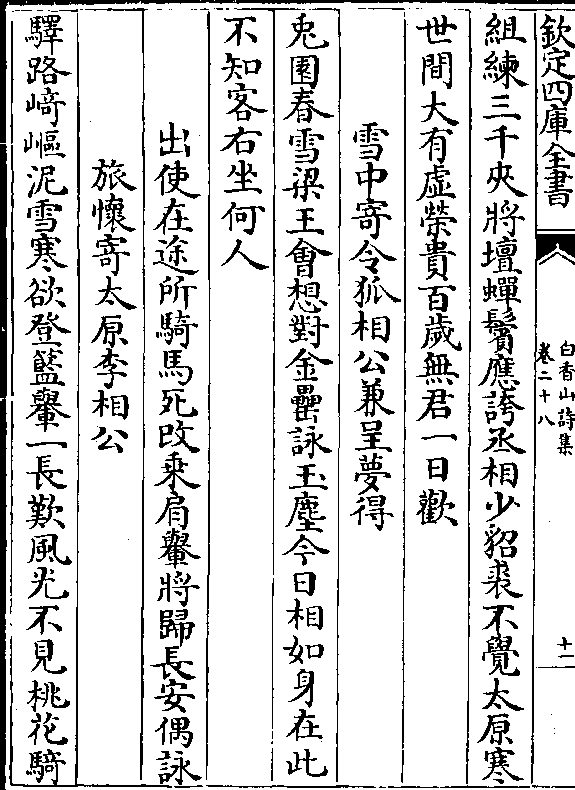 欽定四庫全書
白香山詩集
卷二十八
十一
組練三千夾將壇蟬鬢應誇丞相少貂裘不覺太原寒
世間大有虛榮貴百歲無君一日歡
雪中寄令狐相公兼呈夢得
兎園春雪梁王會想對金罍詠玉塵今日相如身在此
不知客右坐何人
出使在途所騎馬死改乗肩轝將歸長安偶詠
旅懷寄太原李相公
驛路崎嶇泥雪寒欲登籃轝一長歎風光不見桃花騎